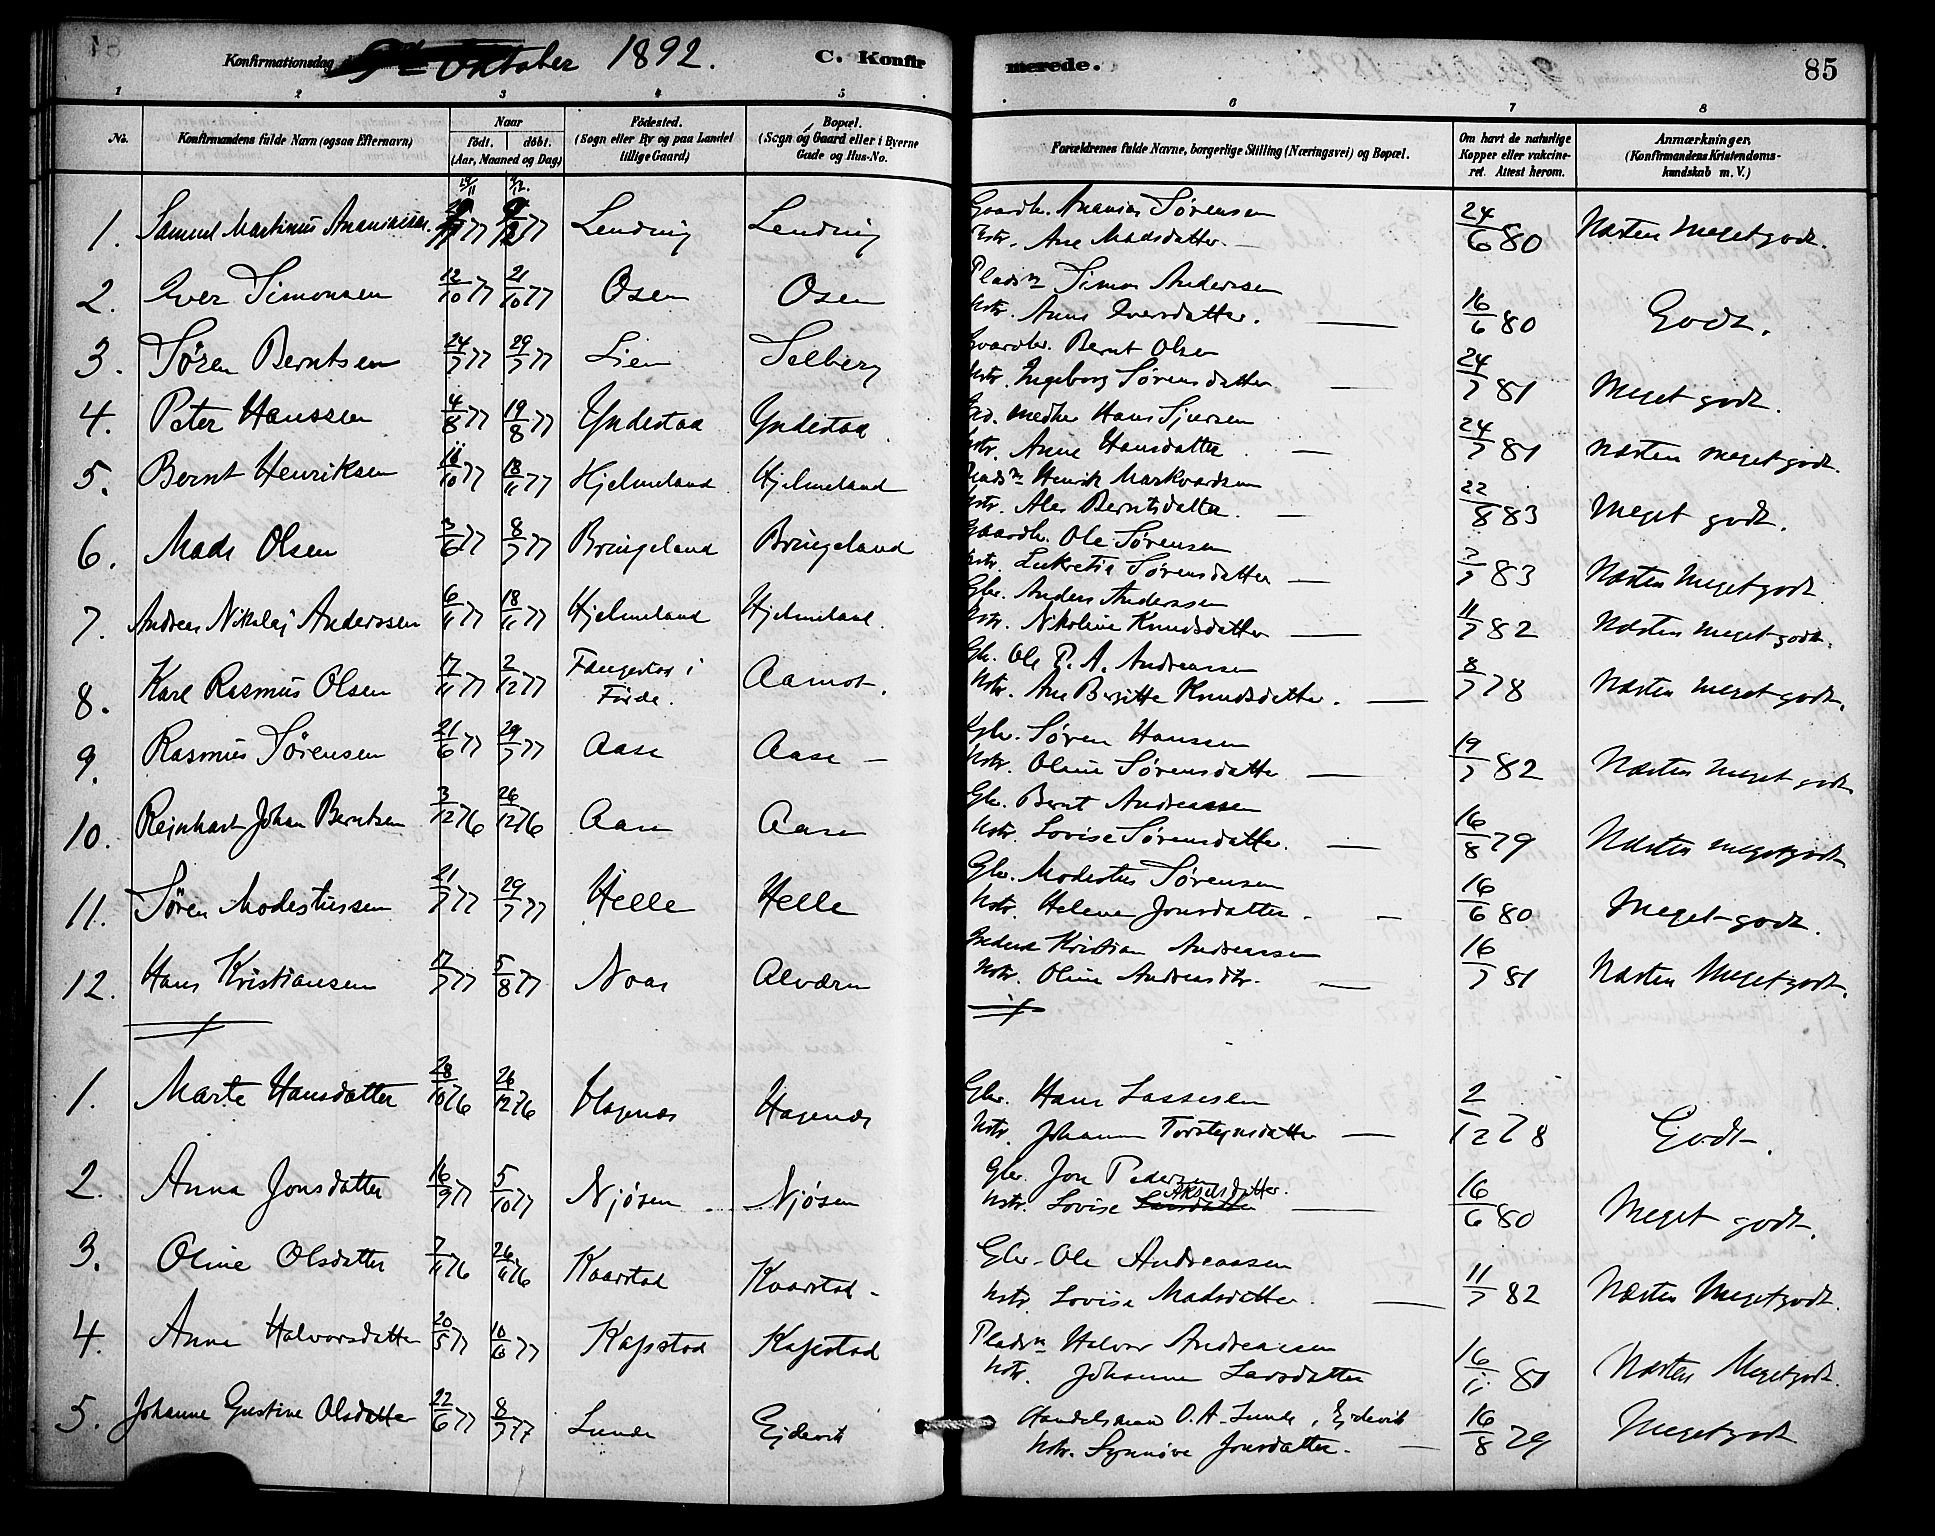 Konfirmationsdag 9de Oktober 1892. C. Konfirmerede. 85
1 2 3 4 5 6 7 8
No. Konfirmandens fulde Navn (ogsaa Efternavn) Naar født. døbt. (Aar, Maaned og Dag) Fødested. (Sogn eller By og paa Landet tillige Gaard) Bopæl. (Sogn og Gaard eller i Byerne Gade og Hus-No. Forældrenes fulde Navne, borgerlige Stilling (Næringsvei) og Bopæl. Om havt de naturlige Kopper eller vakcineret. Attest herom. Anmærkninger, (Konfirmandens Kristendomskundskab m. V.)
1. Samuel Martinus Ananiassen. 77 77 Lending Lending Gaardbr. Ananias Sørensen
Hstr. Ane Madsdatter. — 24/6 80 Næsten Meget godt.
2. Iver Simonsen 12/10 77 21/10 77 Osen Osen Pladsm Simon Anderssen
Hstr. Anne Iversdatter. — 16/6 80 Godt.
3. Søren Berntsen 24/7 77 29/7 77 Lien Solberg Gaardbr. Bernt Olsen
Hstr. Ingeborg Sørensdatter — 24/7 81 Meget godt.
4. Peter Hanssen 4/8 77 19/8 77 Yndestad Yndestad Hans Sjursen
Hstr. Anne Hansdatter. — 24/7 81 Næsten meget godt.
5. Bernt Henriksen 77 18/11 77 Hjelmeland Hjelmeland Pladsm Henrik Markvardsen
Hstr. Ales Berntsdatter. — 22/8 83 Meget godt.
6. Mads Olsen 3/6 77 8/7 77 Bringeland Bringeland Gaardbr. Ole Sørensen
Hstr. Lukretia Sørensdatter — 83 Næsten Meget godt.
7. Andreas Nikolaj Anderssen 6/11 77 18/11 77 Hjelmeland Hjelmeland. Gbr. Anders Anderssen
Hstr. Nikoline Knudsdatter — 11/7 82 Næsten Meget godt.
8. Karl Rasmus Olsen 17/11 77 2/12 77 Fængestad i Førde. Aamot. Gbr. Ole P. A. Andreassen
Hstr. Ane Beritte Knudsdatter. — 8/7 78 Næsten Meget godt.
9. Rasmus Sørensen 21/6 77 29/7 77 Aase Aase — Gbr. Søren Hanssen
Hstr. Oline Sørensdatter — 19/7 82 Næsten Meget godt
10. Rejnhart Johan Berntsen 3/12 76 26/12 76 Aase Aase Gbr. Bernt Andreassen
Hstr. Lovise Sørensdatter. — 16/8 79 Næsten meget godt
11. Søren Modestussen 21/7 77 29/7 77 Helle Helle Gbr. Modestus Sørensen
Hstr. Helene Jonsdatter. — 16/6 80 Meget godt.
12. Hans Kristiansen 17/7 77 5/8 77 Noas Alværn Kristian Andreassen
Hstr. Oline Andreasdtr. — 16/7 81 Næsten Meget godt.
1. Marte Hansdatter 28/10 76 26/12 76 Hagenæs Hagenæs Gbr. Hans Lassesen
Hstr. Johanne Torstejnsdatter — 2/12 78 Godt
2. Anna Jonsdatter 16/9 77 5/10 77 Njøsen Njøsen Gbr. Jon Pedersen
Hstr. Lovise Akselsdatter. — 16/6 80 Meget godt.
3. Oline Olsdatter 7/11 76 26/11 76 Kvarstad Kvarstad Gbr. Ole Andreassen
Hstr. Lovise Madsdatter. — 11/7 82 Næsten Meget godt.
4. Anne Halvorsdatter 20/5 77 10/6 77 Kapstad Kapstad Pladsm Halvor Andreassen
Hstr. Johanne Larsdatter 16/11 81 Næsten Meget godt.
5. Johanne Gustine Olsdatter 22/6 77 8/7 77 Lunde Ejdevik Handelsmand O. A. Lunde, Ejdevik
Hstr. Synnøve Jonsdatter. — 16/8 79 Meget godt